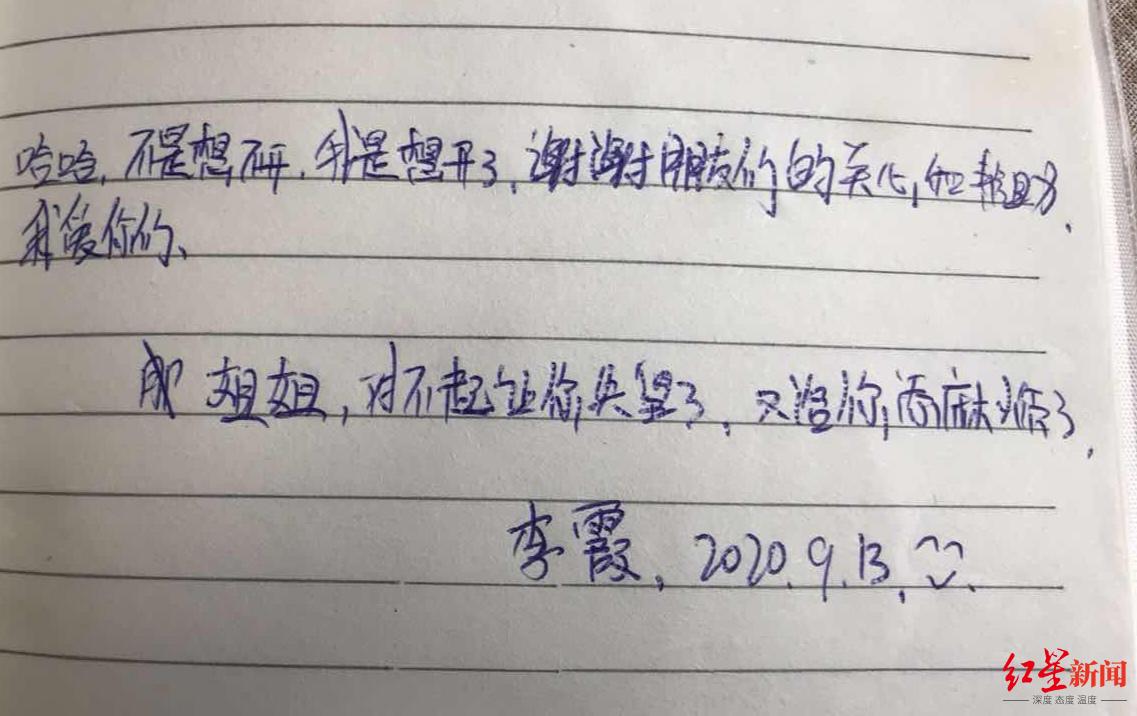 哈哈，不是想不开，我是想开了，谢谢朋友们的关心，和帮助、
我爱你们、
成姐姐，对不起让你失望了，又给你添麻烦了，
李霞，2020.9.13.
红星新闻
深度 态度 温度